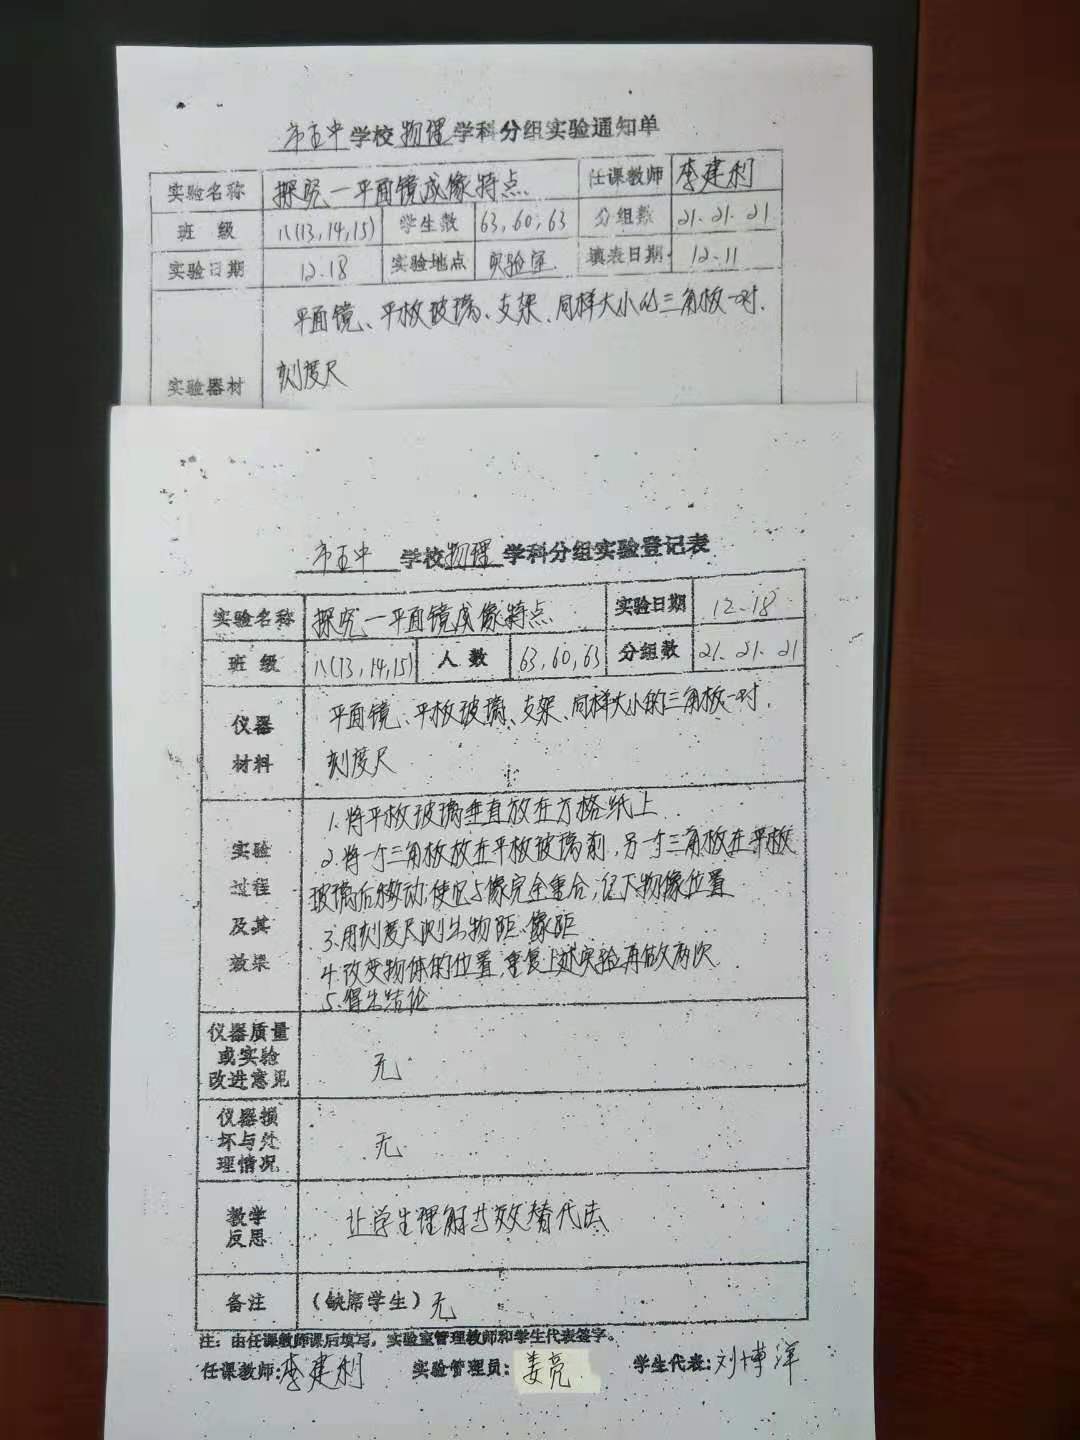 市五中学校物理学科分组实验通知单
实验名称 探究一平面镜成像特点 任课教师 李建利
班级 八(13,14,15) 学生数 63,60,63 分组数 21.21.21
实验日期 12.18 实验地点 实验室 填表日期 12.11
平面镜、平板玻璃、支架、同样大小的三角板一对、
刻度尺
实验器材
市五中学校物理学科分组实验登记表
实验名称 探究一平面镜成像特点 实验日期 12.18
班级 八(13,14,15) 人数 63,60,63 分组数 21.21.21
仪器材料 平面镜、平板玻璃、支架、同样大小的三角板一对、
刻度尺
实验过程及其效果
1.将平板玻璃垂直放在方格纸上
2.将一个三角板放在平板玻璃前,另一个三角板在平板
玻璃后移动,使它与像完全重合,记下物像位置
3.用刻度尺测出物距、像距
4.改变物体的位置,重复上述实验再做两次
5.得出结论
仪器质量或实验改进意见 无
仪器损坏与处理情况 无
教学反思 让学生理解等效替代法
备注 (缺席学生)无
注:由任课教师课后填写,实验室管理教师和学生代表签字。
任课教师:李建利 实验管理员:姜亮 学生代表:刘博洋